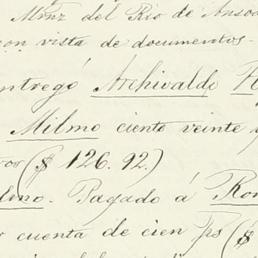 Mrnz del Rio de Ansoa
con vista de documentos.
ntregó Archivaldo H
Milmo ciento veinte y
($ 126.92.)
lmo. Pagado á Ron
cuenta de cien Ps ($